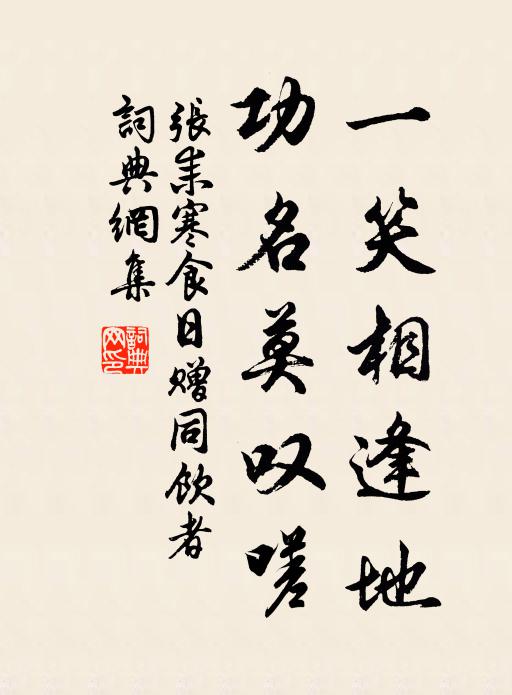 一笑相逢地
功名莫叹嗟
張耒寒食日赠同飲者
詞典網集
詞典网印